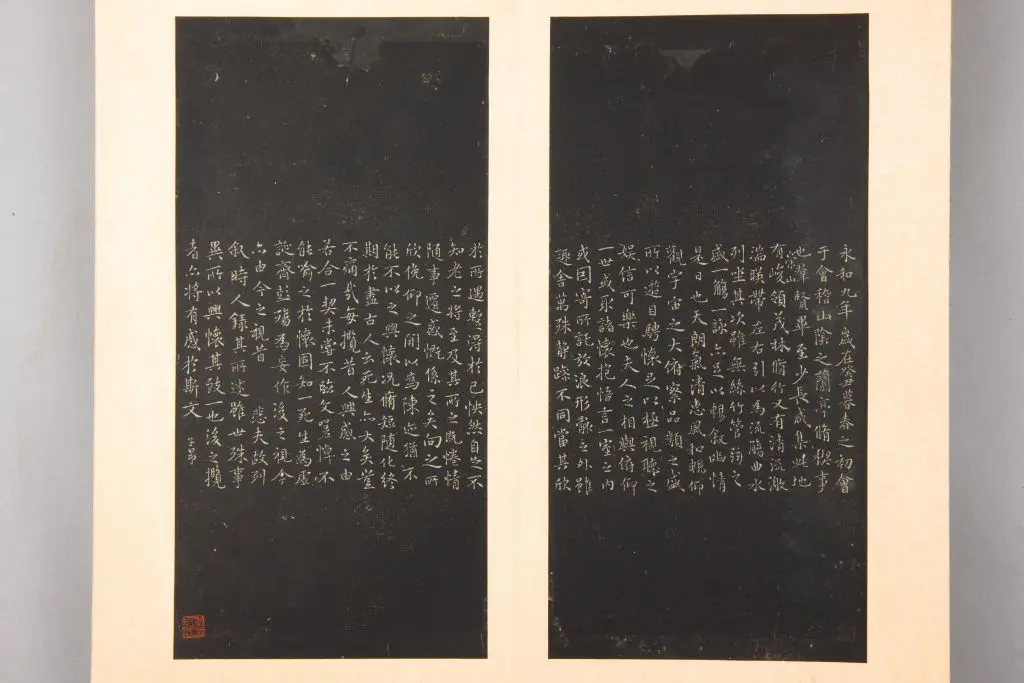 永和九年歲在癸丑暮春之初會
于會稽山陰之蘭亭脩稧事
也羣賢畢至少長咸集此地
有崇山峻領茂林脩竹又有清流激
湍暎帶左右引以為流觴曲水
列坐其次雖無絲竹管弦之
盛一觴一詠亦足以暢叙幽情
是日也天朗氣清惠風和暢仰
觀宇宙之大俯察品類之盛
所以遊目騁懷足以極視聽之
娛信可樂也夫人之相與俯仰
一世或取諸懷抱悟言一室之內
或因寄所託放浪形骸之外雖
趣舍萬殊靜躁不同當其欣
於所遇蹔得於己怏然自足不
知老之將至及其所之既惓情
隨事遷感慨係之矣向之所
欣俛仰之間以為陳迹猶不
能不以之興懷況脩短隨化終
期於盡古人云死生亦大矣豈
不痛哉每攬昔人興感之由
若合一契未嘗不臨文嗟悼不
能喻之於懷固知一死生為虛
誕齊彭殤為妄作後之視今
亦由今之視昔悲夫故列
叙時人錄其所述雖世殊事
異所以興懷其致一也後之攬
者亦將有感於斯文
子昂